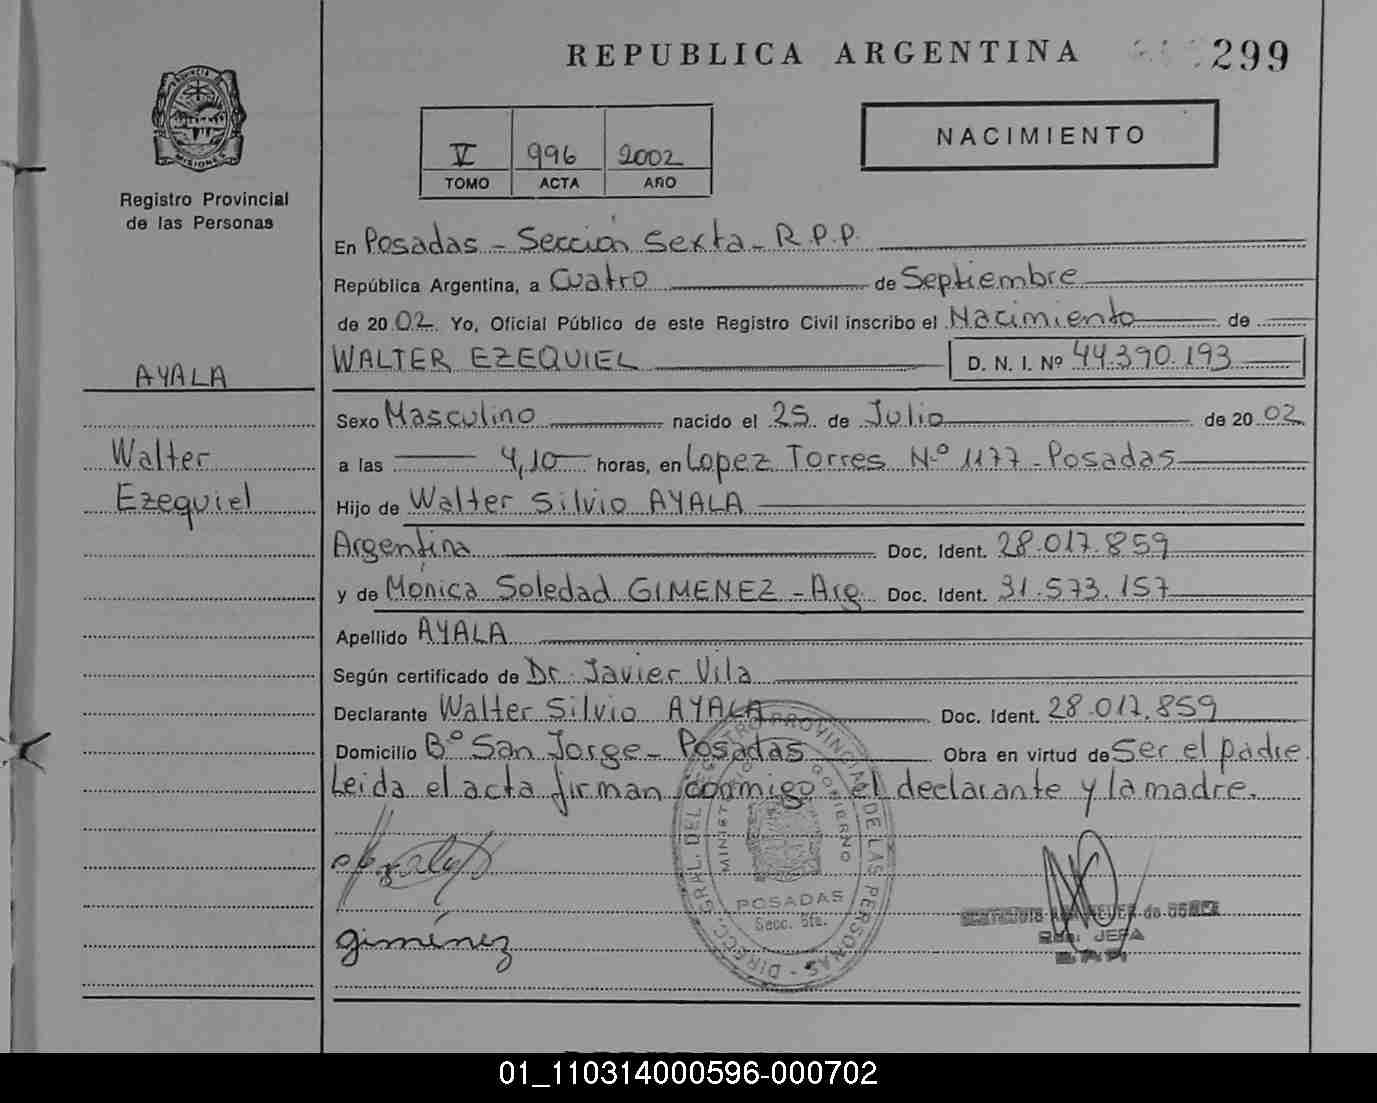 REPUBLICA ARGENTINA 299
PROVINCIA DE MISIONES
Registro Provincial
de las Personas
NACIMIENTO
V 996 2002
TOMO ACTA AÑO
En Posadas - Sección Sexta - R.P.P.
República Argentina, a Cuatro de Septiembre
de 2002. Yo, Oficial Público de este Registro Civil inscribo el Nacimiento de
WALTER EZEQUIEL D. N. I. Nº 44.390.193
AYALA
Walter
Ezequiel
Sexo Masculino nacido el 25 de Julio de 2002
a las 4,10 horas, en Lopez Torres N.º 1177 - Posadas
Hijo de Walter Silvio AYALA
Argentina Doc. Ident. 28.017.859
y de Mónica Soledad GIMENEZ - Arg. Doc. Ident. 31.573.157
Apellido AYALA
Según certificado de Dr. Javier Vila
Declarante Walter Silvio AYALA Doc. Ident. 28.017.859
Domicilio Bº San Jorge - Posadas Obra en virtud de Ser el padre
Leida el acta firman conmigo el declarante y la madre.
giménez
DIRECC. GRAL. DEL REGISTRO PROVINCIAL DE LAS PERSONAS
MINISTERIO GOBIERNO
POSADAS
Secc. 6ta.
JEFA
01_110314000596-000702